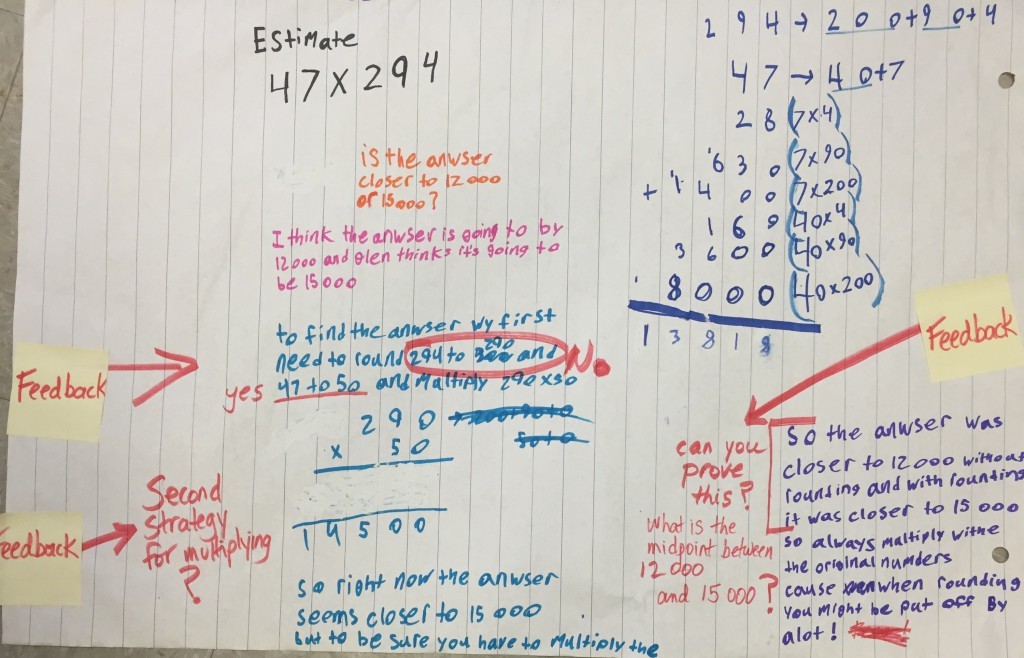 Estimate
47 x 294
is the anwser
closer to 12 000
or 15000?
I think the anwser is going to by
12000 and Glen thinks it's going to
be 15000
to find the anwser wy first
need to round 294 to 290 and
47 to 50 and Multiply 290 x 50
290
x 50
14500
So right now the anwser
seems closer to 15 000
but to be sure you have to Multiply the
Feedback
yes
No
Feedback
Second
strategy
for multiplying
?
294 → 200+90+4
47 → 40+7
28 (7x4)
630 (7x90)
+ 1400 (7x200)
160 (40x4)
3600 (40x90)
8000 (40x200)
13818
Feedback
can you
prove
this?
What is the
midpoint between
12 000
and 15 000?
So the anwser was
closer to 12000 without
rounding and with rounding
it was closer to 15 000
so always maltiply withe
the original numders
cause when rounding
you might be put off By
alot!